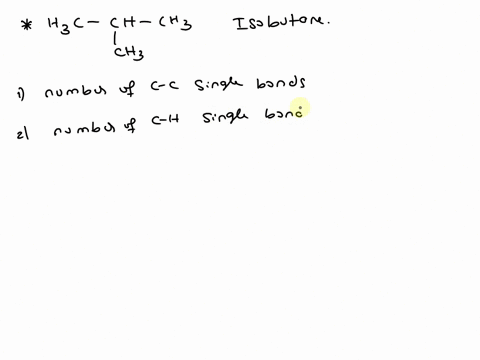 * H3C - CH - CH3 Isobutane.
CH3
1) number of C-C single bonds
2) number of C-H single bond